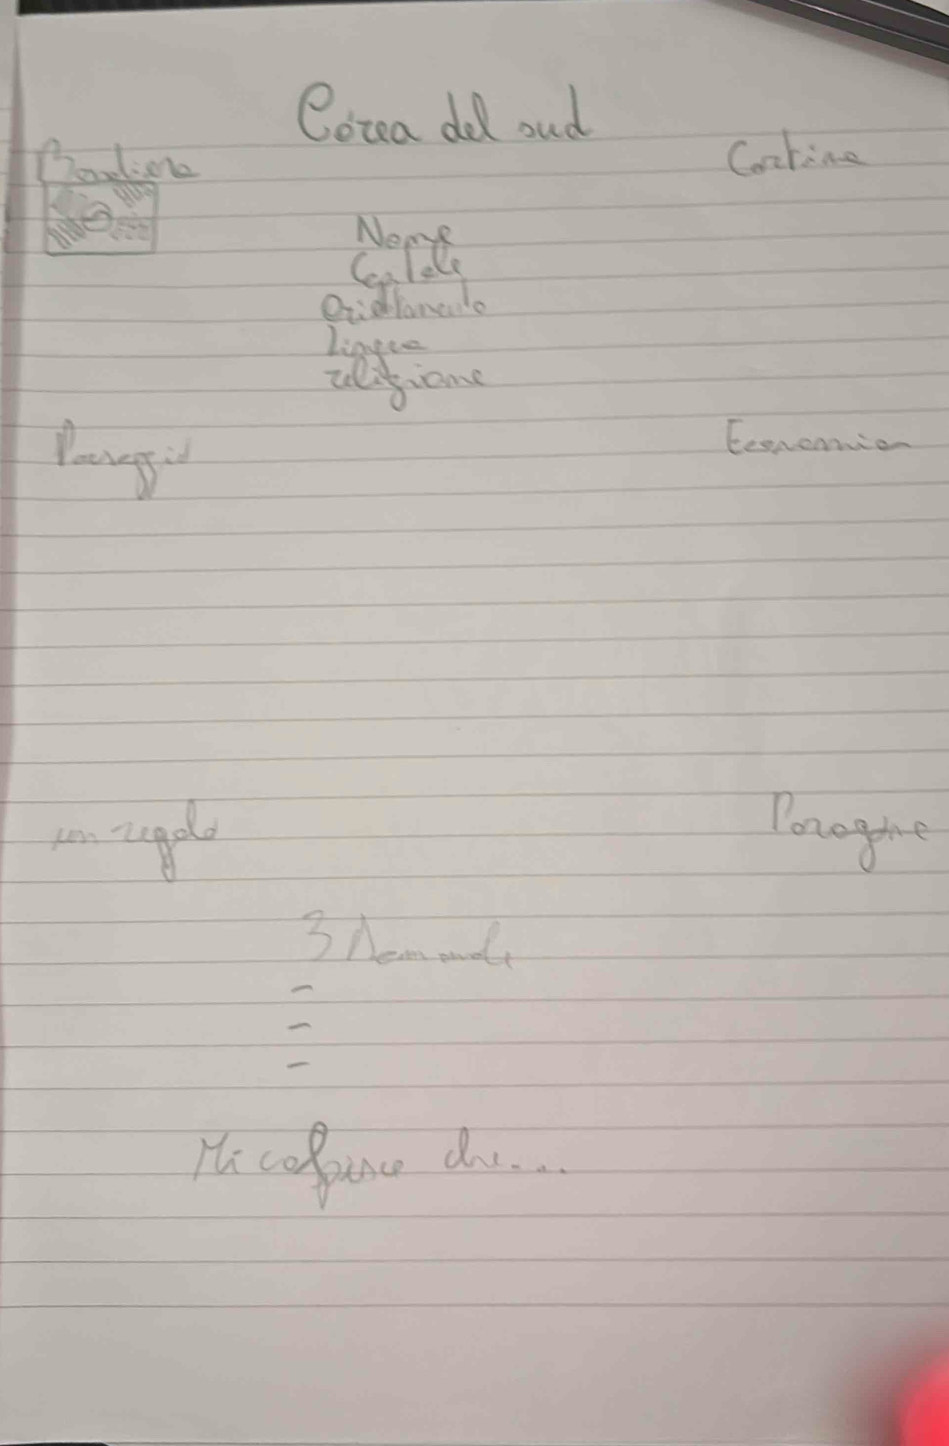 Corea del sud
Bandiera
Cartina
Nome
Capitale
Lingua
religione
Paesaggio
Economia
un regalo
3 Domande
-
-
-
Mi colpisce che...